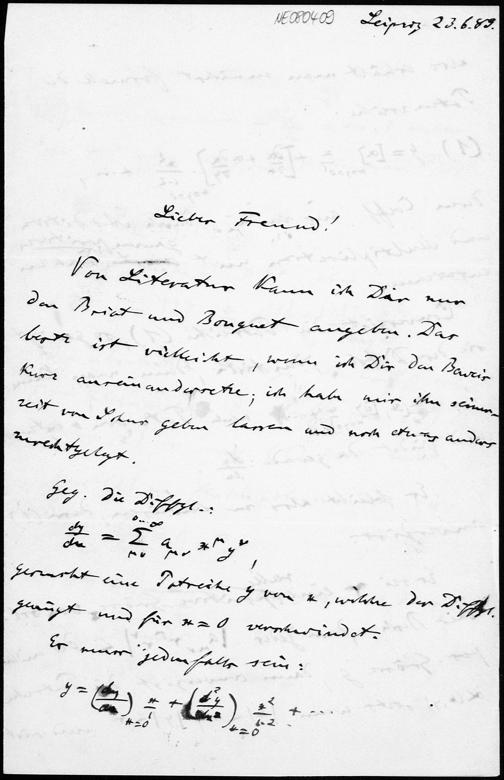 NE080409
Leipzig 23.6.89.
Lieber Freund!
Von Literatur kann ich Dir nur
den Briot und Bouquet angeben. Das
beste ist vielleicht, wenn ich Dir den Beweis
kurz auseinandersetze; ich habe mir ihn seiner-
zeit von geben lassen und noch etwas anders
zurechtgelegt.
Geg. die Diffgl.:
dy/dx = Σ_{μν}^{0...∞} a_{μν} x^μ y^ν,
gesucht eine Potreihe y von x, welche der Diffgl.
genügt und für x=0 verschwindet.
Es muss jedenfalls sein:
y = (dy/dx)_{x=0} x/1 + (d²y/dx²)_{x=0} x²/1·2 + ...